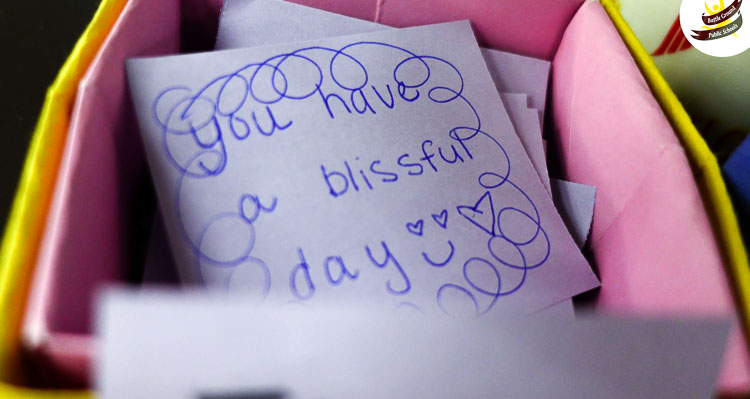 Battle Ground
Public Schools
You have
a blissful
day